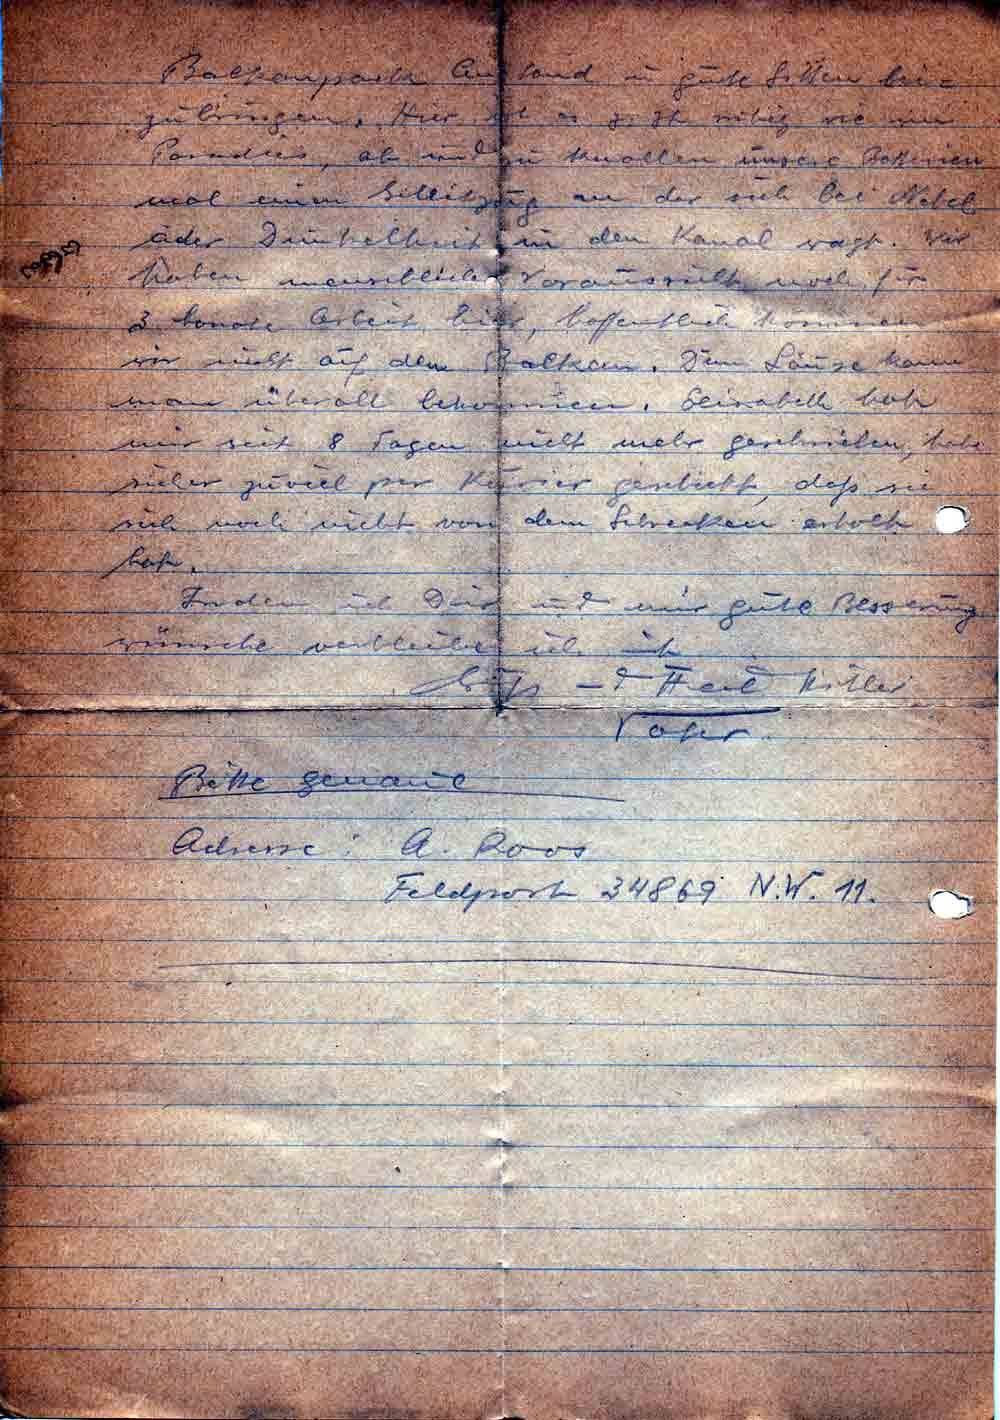 Balkanpack Anstand u gute Sitten bei=
zubringen. Hier ist es z. Zt ruhig wie im
Paradies, ab und zu knallen unsere Batterien
mal einen Geleitzug an der sich bei Nebel
oder Dunkelheit in den Kanal wagt. Wir
haben menschlicher Voraussicht noch für
3 Monate Arbeit hier, hoffentlich kommen
wir nicht auf den Balkan. Denn Läuse kann
man überall bekommen. Elisabeth hat
mir seit 8 Tagen nicht mehr geschrieben, habe
sicher zuviel per Kurier geliebt, daß sie
sich noch nicht von dem Schrecken erholt
hat.
Indem ich Dir und mir gute Besserung
wünsche verbleibe ich mit
Gruß und Heil Hitler
Vater.
Bitte genaue
Adresse: A. Roos
Feldpost 34869 N.W. 11.